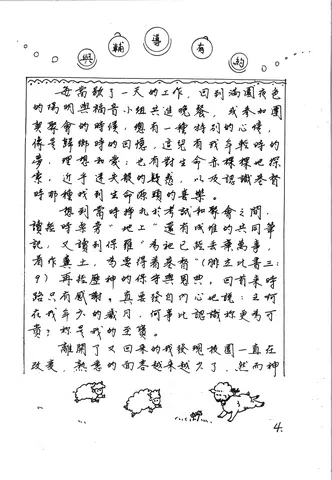 與輔導有約
每當歇了一天的工作,回到滿園夜色
的瑪明與福音小組共進晚餐,或參加團
契聚會的時候,總有一種特別的心情,
像是歸鄉時的回憶,這兒有我年輕時的
夢,理想和愛;也有對生命赤裸裸地探
索,近乎迷失般的疑惑,以及認識基督
時那種找到生命源頭的喜樂。
想到當時掙扎於考試和聚會之間,
讀經時旁"地上"還有成堆的共同筆
記,又讀到保羅「為祂已經丟棄萬事,
看作糞土,為要得著基督」(腓立比書三:
9)再經歷神的保守與恩典,回首來時
路只有感謝。真要發自內心地說:主阿
在我年少的歲月,何事比認識祢更為可
貴?祢是我的至寶。
離開了又回來的我發現校園一直在
改變,熟悉的面容越來越少了,然而神
4.